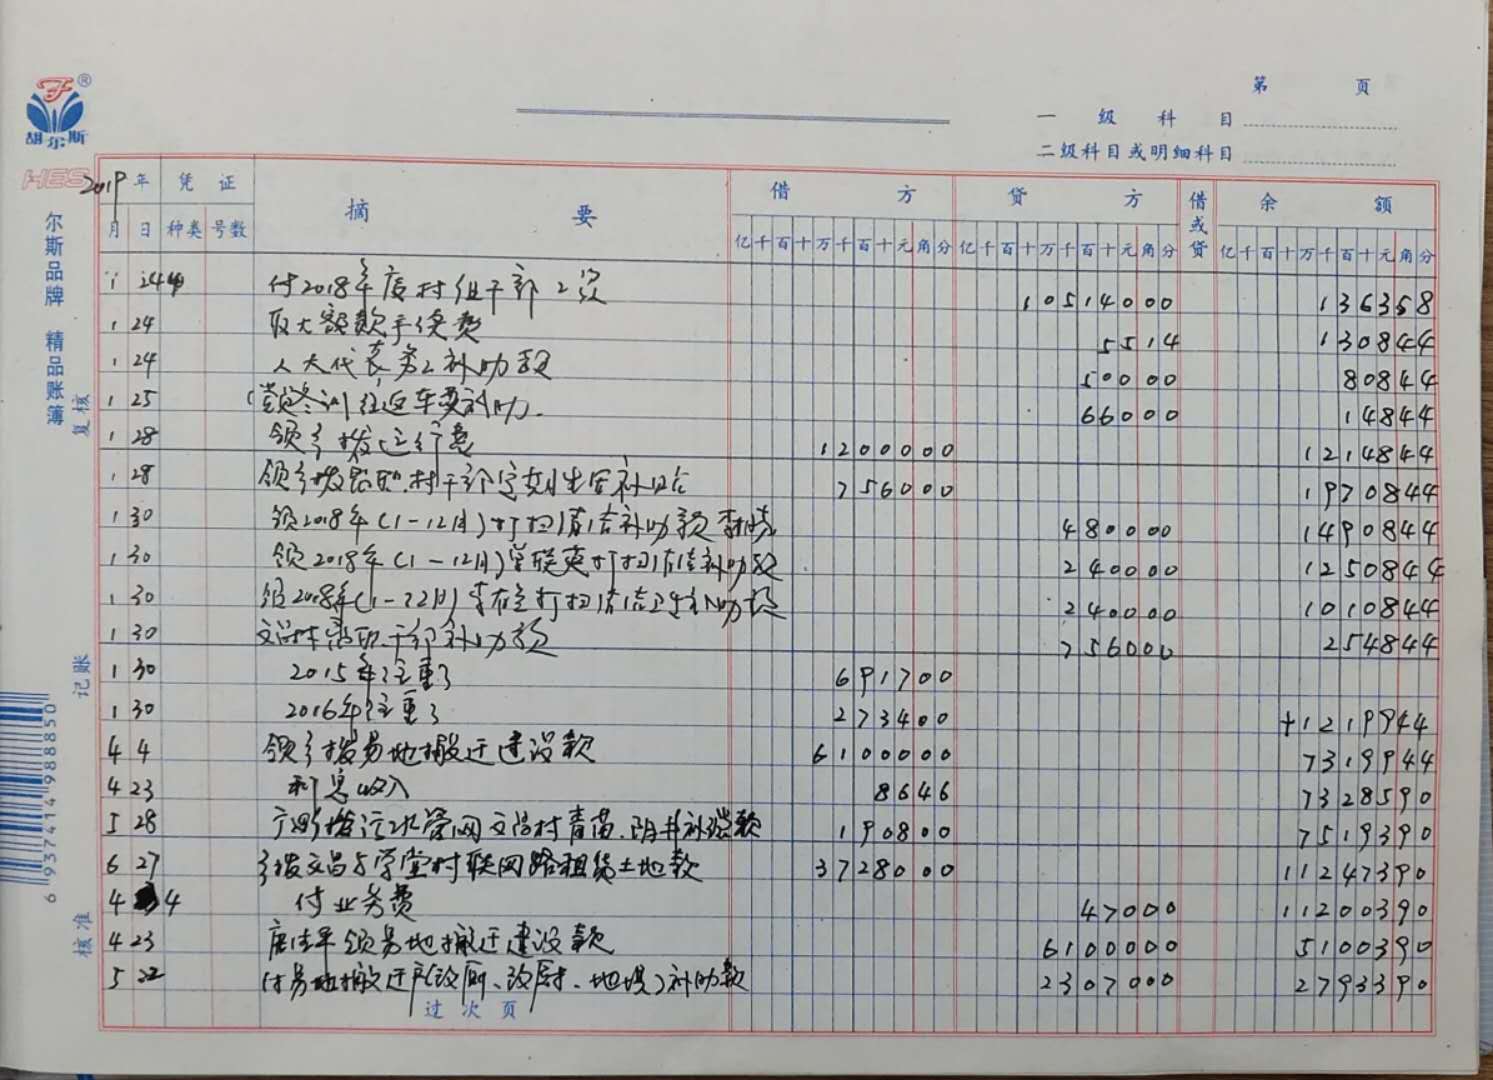 胡尔斯 ®
HES
尔斯品牌 精品账簿
复核
记账
核准
6 937414 988850
第 页
一级科目
二级科目或明细科目
2019年 凭证 摘要 借方 贷方 借或贷 余额
月 日 种类 号数 亿千百十万千百十元角分 亿千百十万千百十元角分 亿千百十万千百十元角分
1 24 付2018年度村组干部工资 10514000 136358
1 24 取大额款手续费 5514 130844
1 24 人大代表务工补助款 50000 80844
1 25 冬训往返车费补助. 66000 14844
1 28 领乡拨运行费 1200000 1214844
1 28 领乡拨离职.村干部定额生活补贴 756000 1970844
1 30 领2018年(1-12月)打扫清洁补助款 480000 1490844
1 30 领2018年(1-12月)打扫清洁补助款 240000 1250844
1 30 领2018年(1-12月)打扫清洁卫生补助款 240000 1010844
1 30 文昌村离职干部补助款 756000 254844
1 30 2015年注重了 691700
1 30 2016年注重了 273400 +1219944
4 4 领乡拨易地搬迁建设款 6100000 7319944
4 23 利息收入 8646 7328590
5 28 拨污水管网文昌村青苗.阴井补偿款 190800 7519390
6 27 乡拨文昌与学堂村联网路租赁土地款 3728000 11247390
4 4 付业务费 47000 11200390
4 23 领易地搬迁建设款 6100000 5100390
5 22 付易地搬迁户(改厕、改厨、地坝)补助款 2307000 2793390
过次页